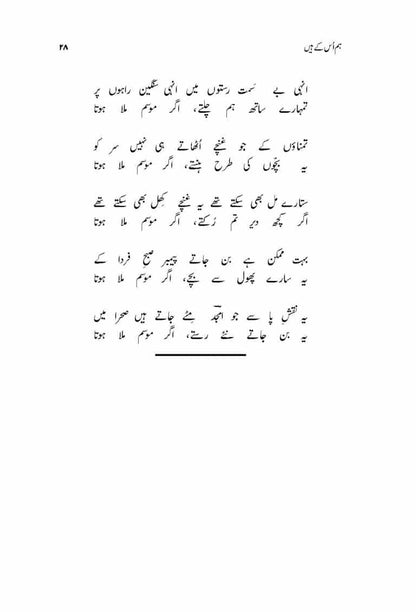 ہم اُس کے ہیں
۲۸
انہی بے سَمت رستوں میں انہی سنگین راہوں پر
تمہارے ساتھ ہم چلتے، اگر موسم ملا ہوتا
تمناؤں کے جو غنچے اُٹھاتے ہی نہیں سر کو
یہ بچّوں کی طرح ہنستے، اگر موسم ملا ہوتا
ستارے مل بھی سکتے تھے یہ غنچے کھِل بھی سکتے تھے
اگر کچھ دیر تم رُکتے، اگر موسم ملا ہوتا
بہت ممکن ہے بن جاتے پیمبر صبحِ فردا کے
یہ سارے پھول سے بچے، اگر موسم ملا ہوتا
یہ نقشِ پا سے جو امجدؔ مِٹے جاتے ہیں صحرا میں
یہ بن جاتے نئے رستے، اگر موسم ملا ہوتا